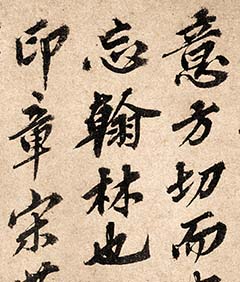 意方切而
忘翰林也
印章宋